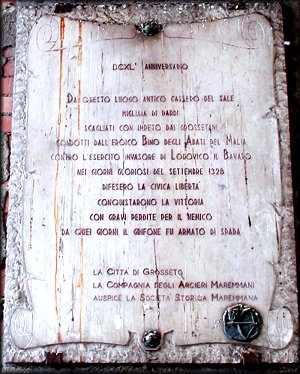 DCXL° ANNIVERSARIO
DA QUESTO LUOGO ANTICO CASSERO DEL SALE
MIGLIAIA DI DARDI
SCAGLIATI CON IMPETO DAI GROSSETANI
CONDOTTI DALL'EROICO BINO DEGLI ABATI DEL MALIA
CONTRO L'ESERCITO INVASORE DI LODOVICO IL BAVARO
NEI GIORNI GLORIOSI DEL SETTEMBRE 1328
DIFESERO LA CIVICA LIBERTÀ
CONQUISTARONO LA VITTORIA
CON GRAVI PERDITE PER IL NEMICO
DA QUEI GIORNI IL GRIFONE FU ARMATO DI SPADA
LA CITTÀ DI GROSSETO
LA COMPAGNIA DEGLI ARCIERI MAREMMANI
AUSPICE LA SOCIETÀ STORICA MAREMMANA